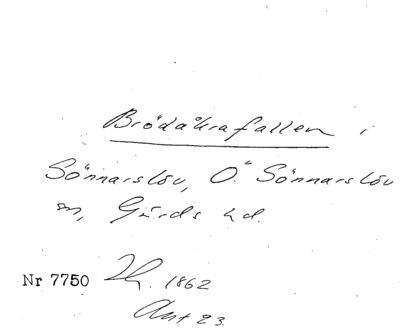 Brödåkrafallen i
Sönnarslöv, Ö. Sönnarslöv
sn, Gärds hd.
Nr 7750 1862
Akt 23.